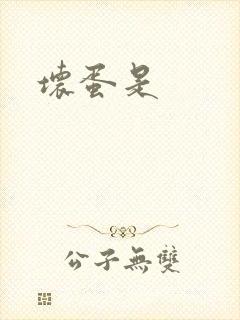 壞蛋是
公子無雙